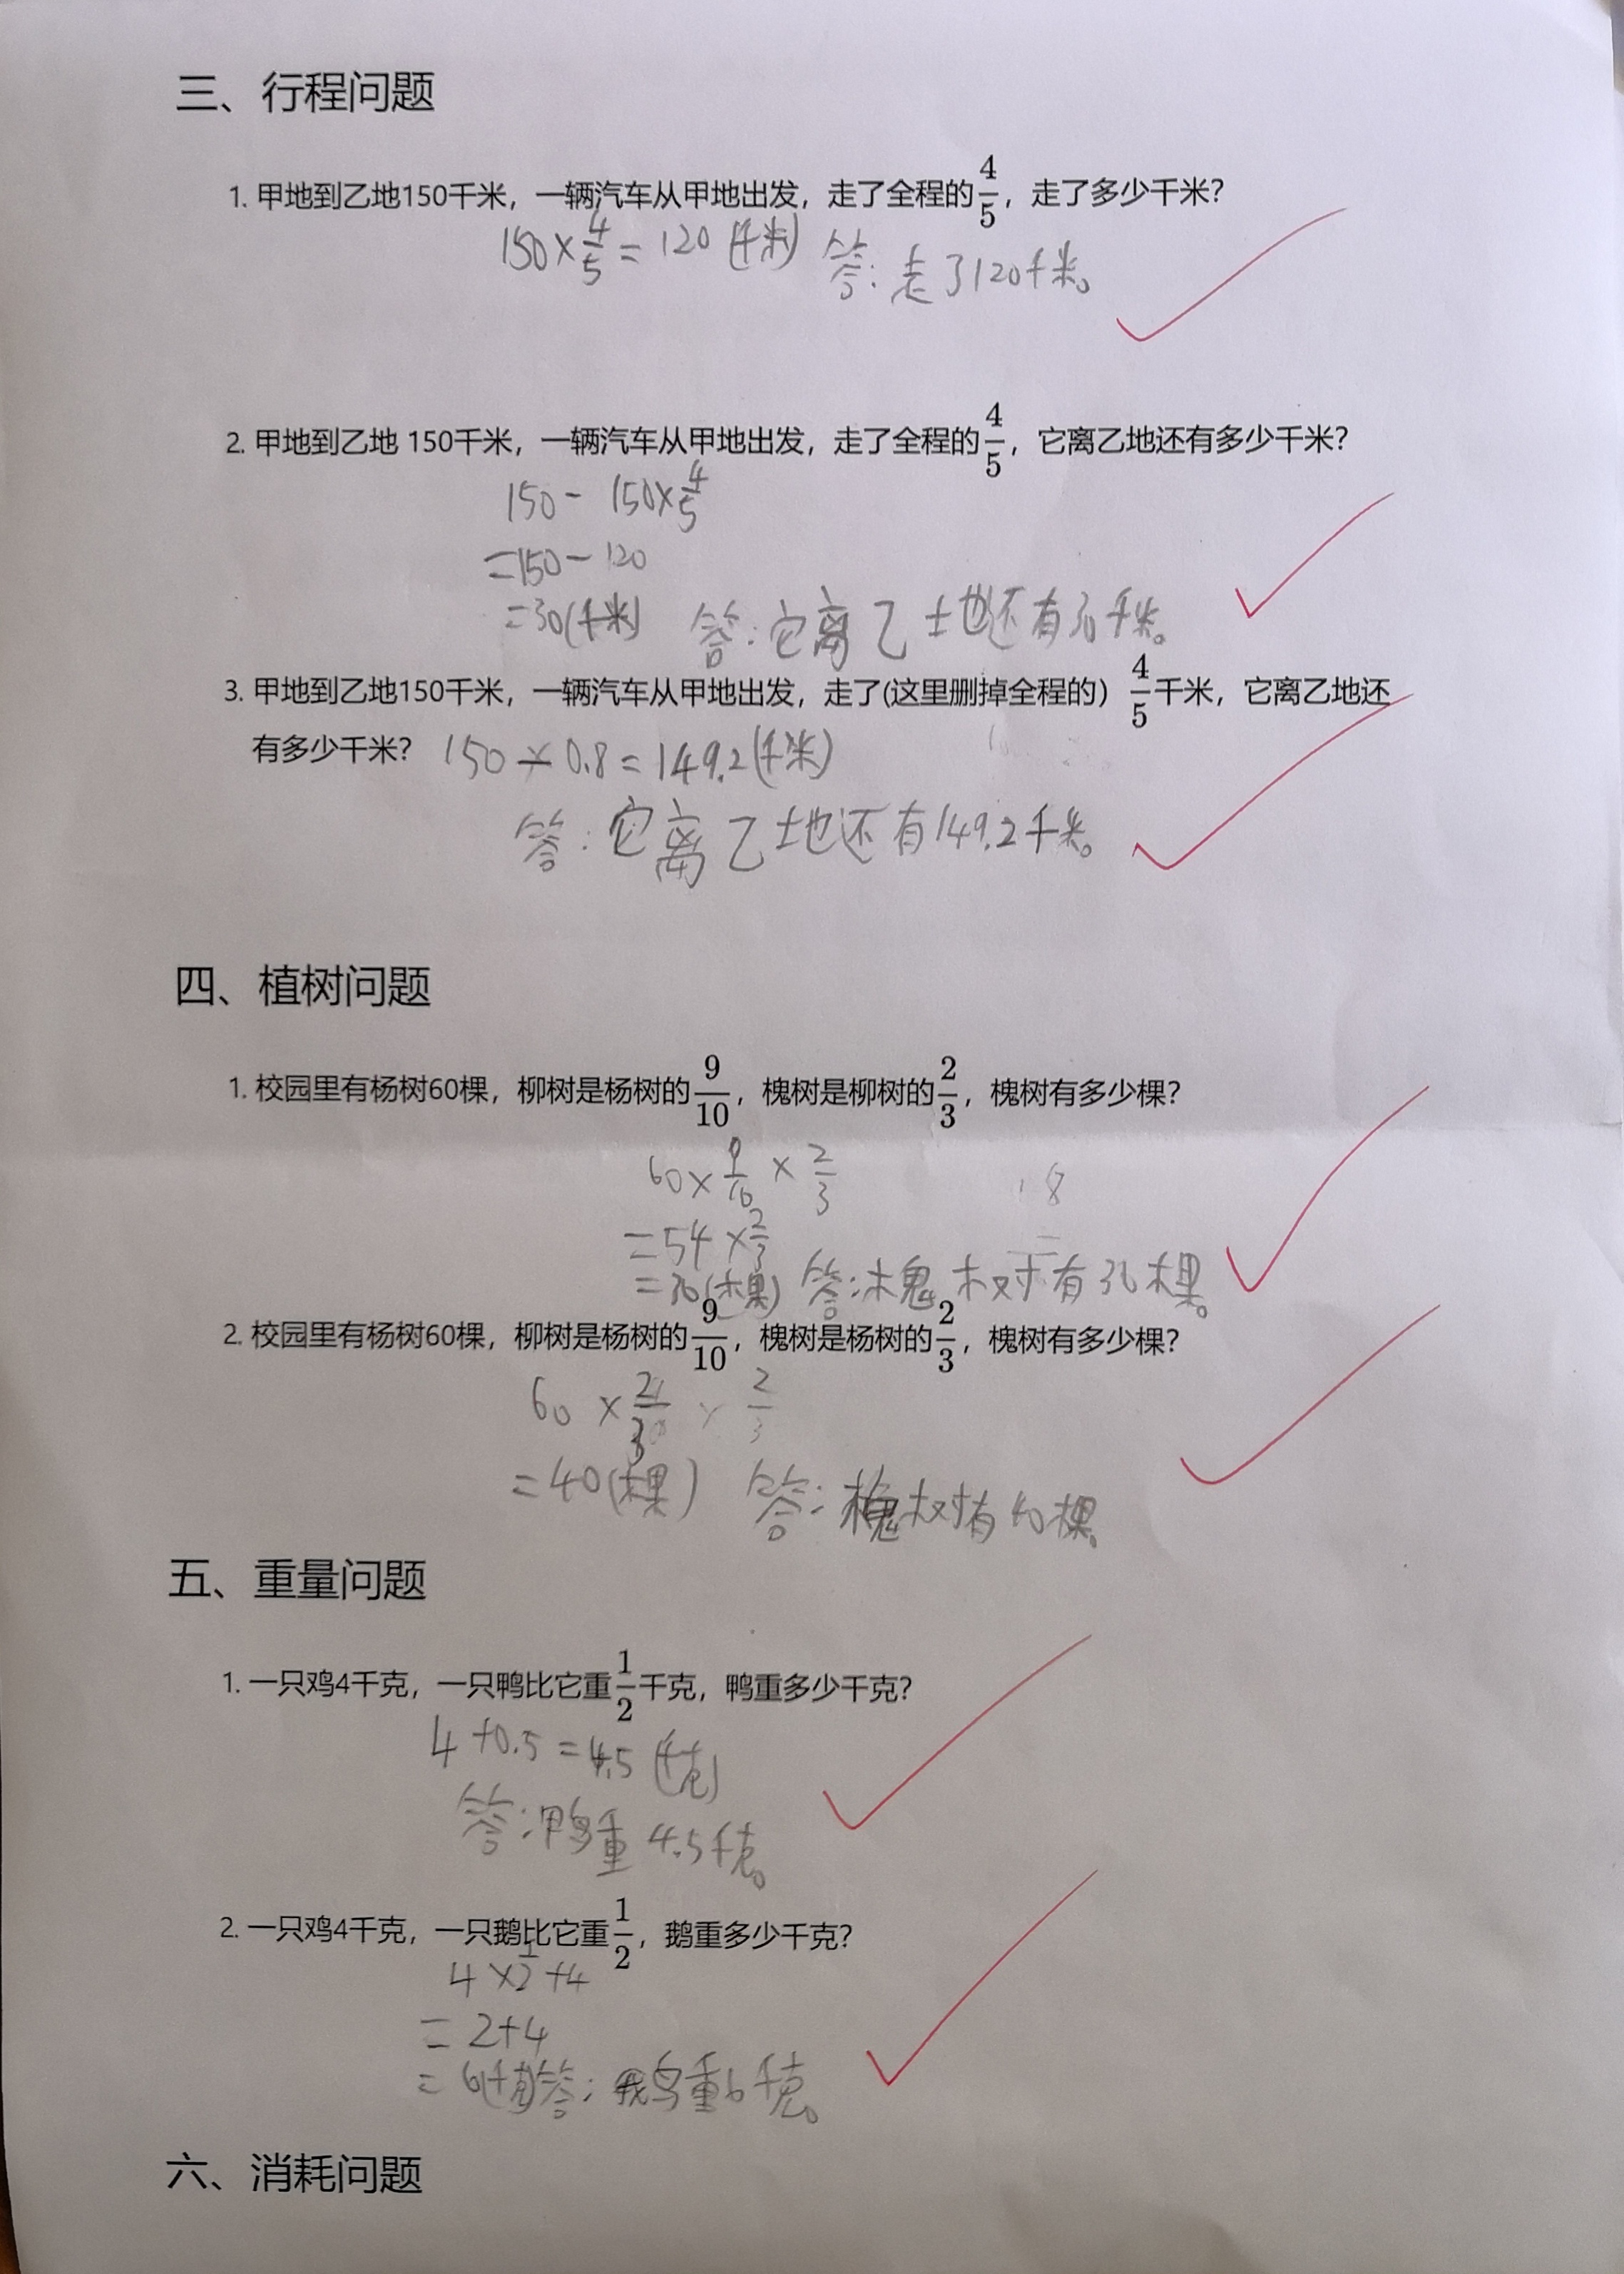 三、行程问题
1. 甲地到乙地150千米，一辆汽车从甲地出发，走了全程的4/5，走了多少千米？
150×4/5=120(千米) 答:走了120千米。
2. 甲地到乙地 150千米，一辆汽车从甲地出发，走了全程的4/5，它离乙地还有多少千米？
150-150×4/5
=150-120
=30(千米) 答:它离乙地还有30千米。
3. 甲地到乙地150千米，一辆汽车从甲地出发，走了(这里删掉全程的）4/5千米，它离乙地还
有多少千米？ 150-0.8=149.2(千米)
答:它离乙地还有149.2千米。
四、植树问题
1. 校园里有杨树60棵，柳树是杨树的9/10，槐树是柳树的2/3，槐树有多少棵？
60×9/10×2/3
=54×2/3
=36(棵) 答:槐树有36棵。
2. 校园里有杨树60棵，柳树是杨树的9/10，槐树是杨树的2/3，槐树有多少棵？
60×2/3
=40(棵) 答:槐树有40棵。
五、重量问题
1. 一只鸡4千克，一只鸭比它重1/2千克，鸭重多少千克？
4+0.5=4.5(千克)
答:鸭重4.5千克。
2. 一只鸡4千克，一只鹅比它重1/2，鹅重多少千克？
4×1/2+4
=2+4
=6(千克)答:鹅重6千克。
六、消耗问题